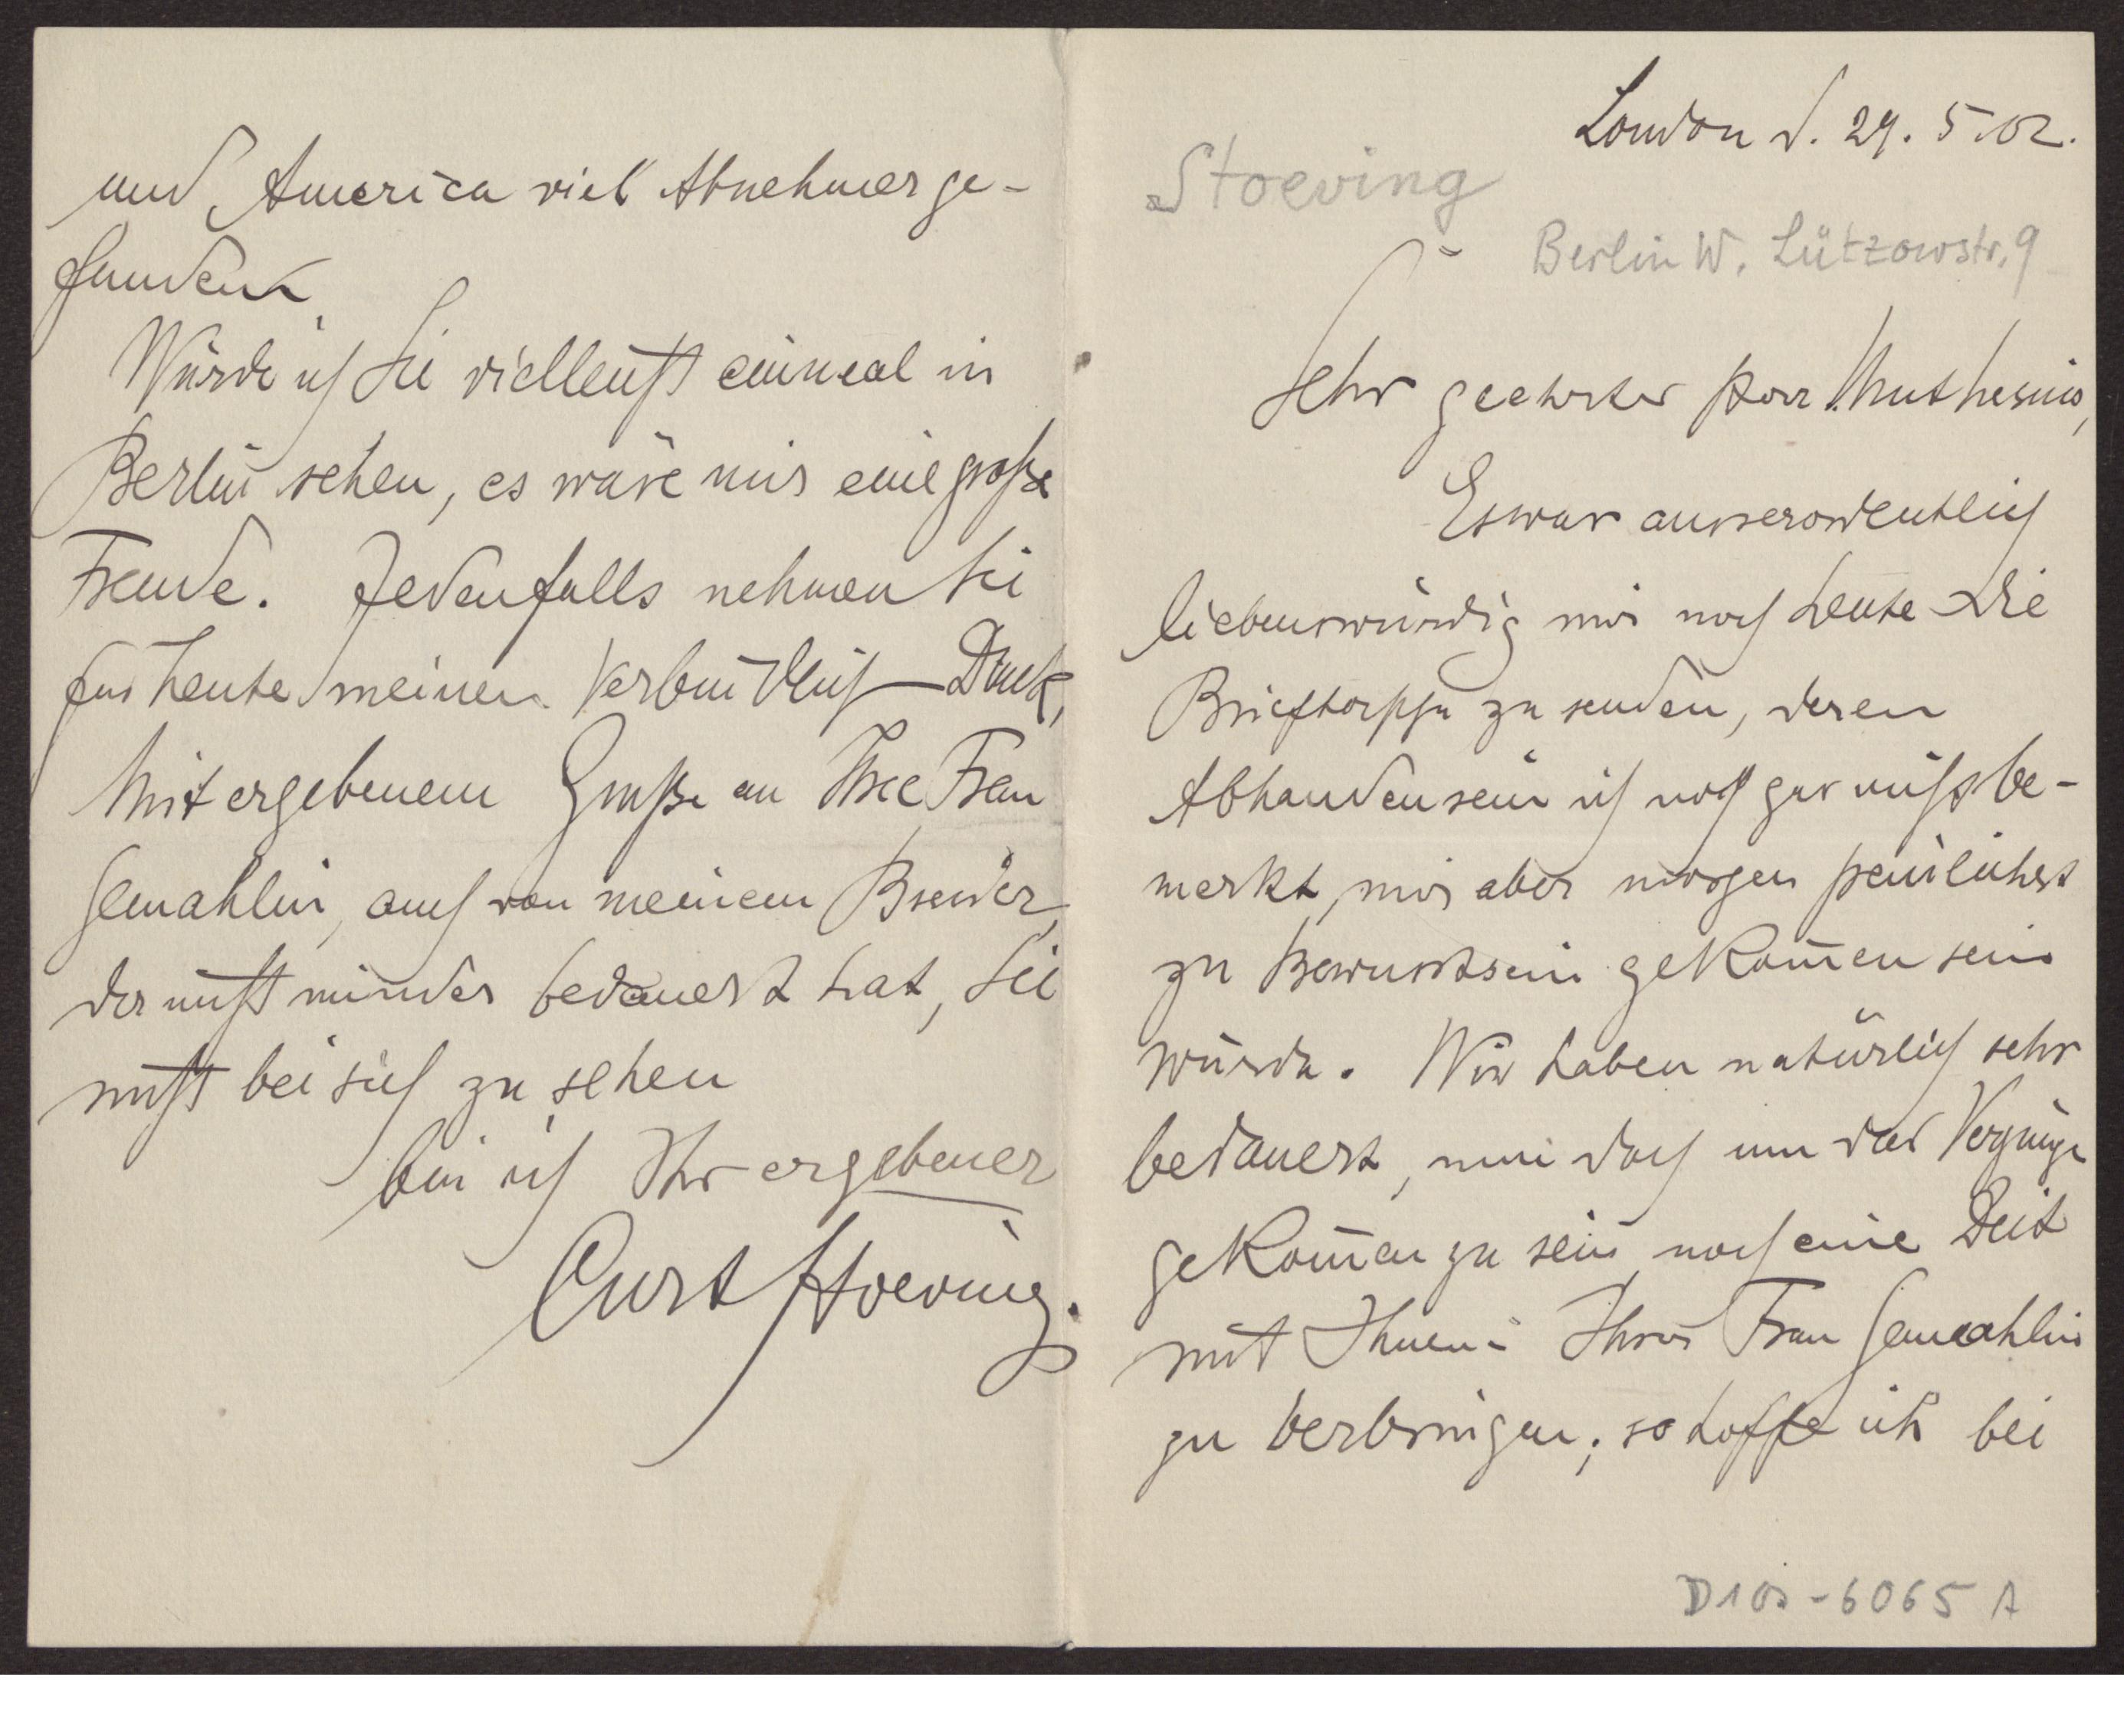 London d. 29. 5.02.
Stoeving
Berlin W. Lützowstr. 9
Sehr geehrter Herr Muthesius,
Es war ausserordentlich
liebenswürdig mir noch heute die
Brieftasche zu senden, deren
Abhandensein ich noch gar nicht be-
merkt, mir aber morgen peinlichst
zu Bewusstsein gekom̅en sein
würde. Wir haben natürlich sehr
bedauert, nun doch um das Vergnügen
gekom̅en zu sein noch eine Zeit
mit Ihnen u. Ihrer Frau Gemahlin
zu verbringen; so hoffe ich bei
D102-6065 A
und America viel Abnehmer ge-
funden.
Würde ich Sie vielleicht einmal in
Berlin sehen, es wäre mir eine große
Freude. Jedenfalls nehmen Sie
für heute meinen verbindlichsten Dank,
Mit ergebenem Gruße an Ihre Frau
Gemahlin, auch von meinem Bruder,
der nicht minder bedauert hat, Sie
nicht bei sich zu sehen
bin ich Ihr ergebener
Curt Stoeving.